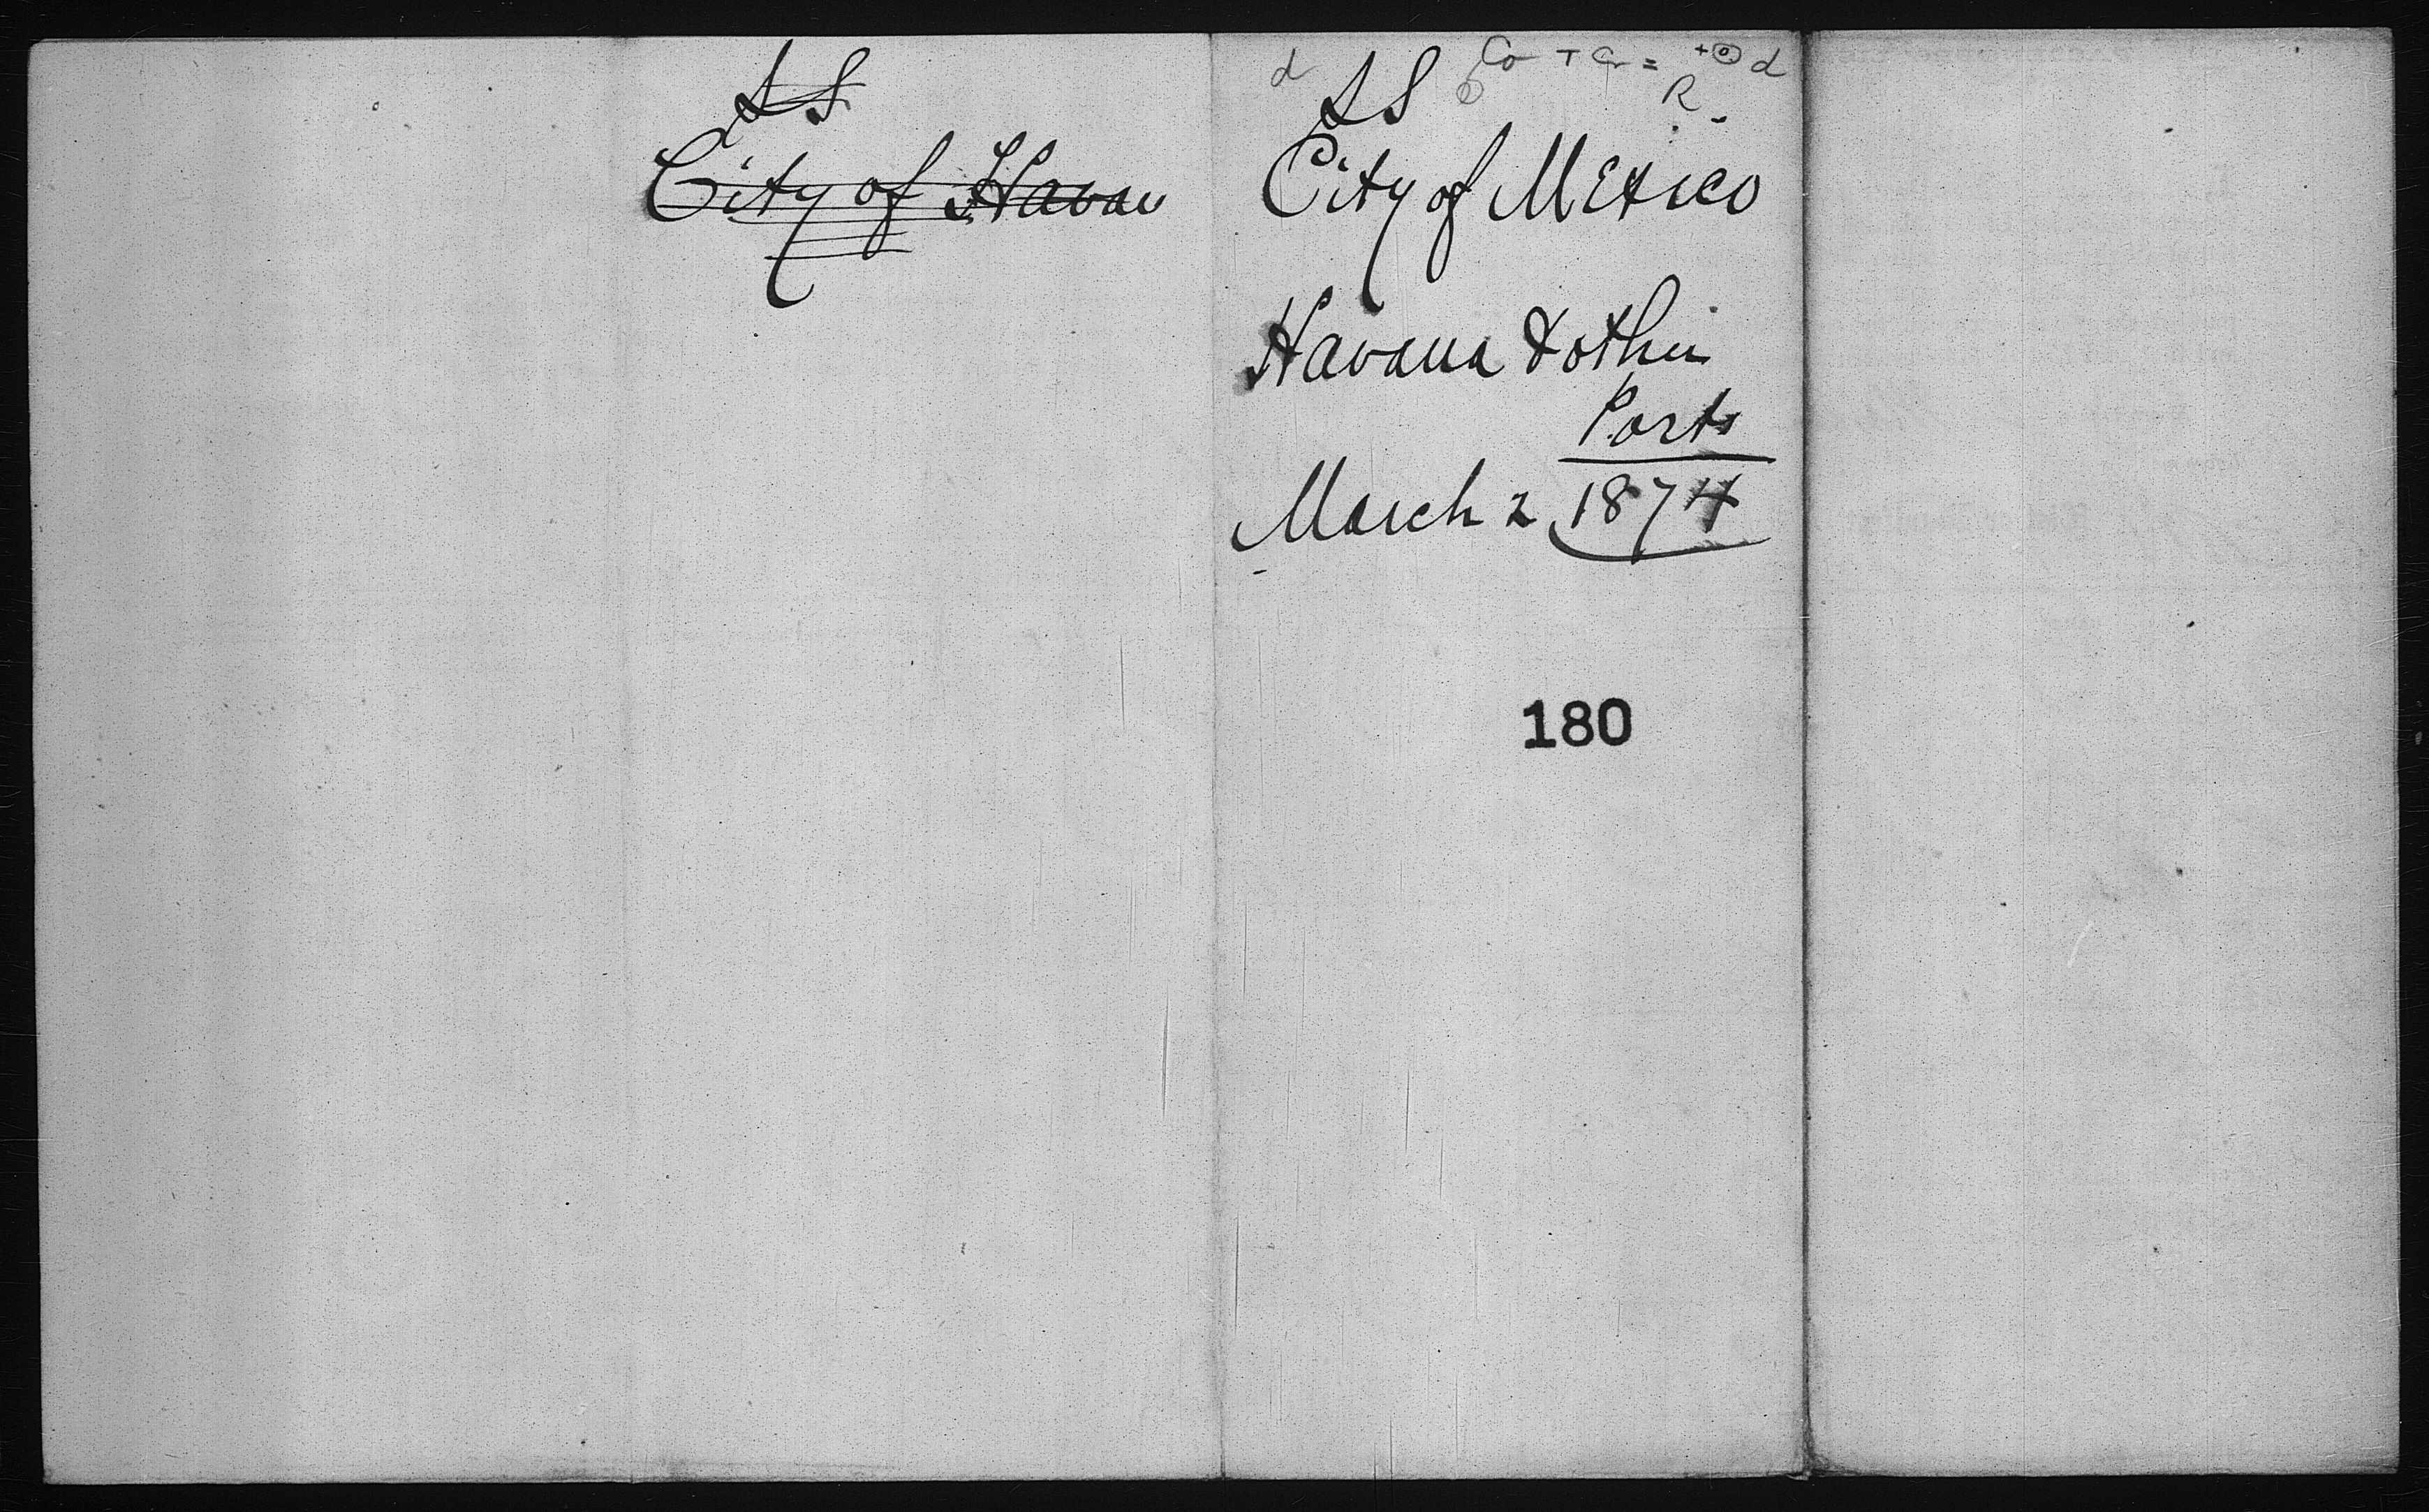 SS
City of Havan
SS
City of Mexico
Havana & other
Ports
March 2 1874
180